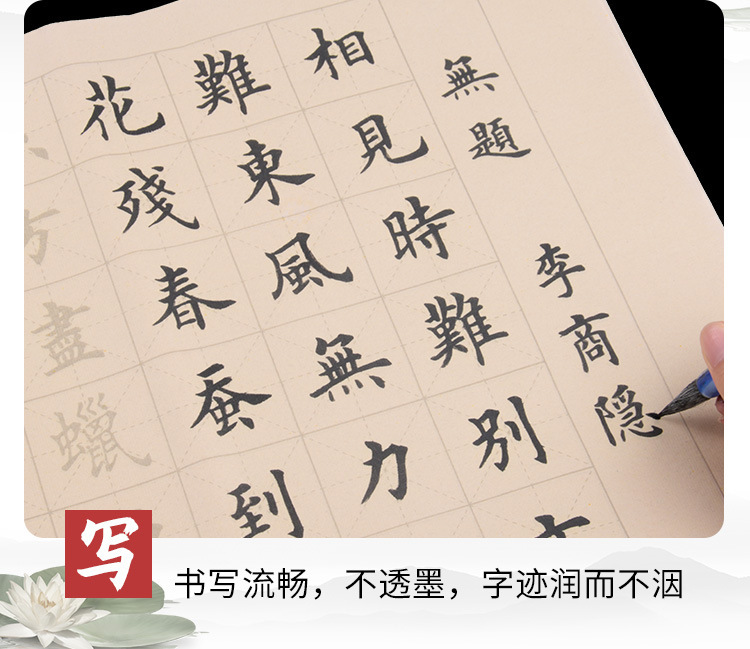 無題 李商隐
相見時難別
難東風無力
花殘春蚕到
方盡蠟
写
书写流畅，不透墨，字迹润而不洇